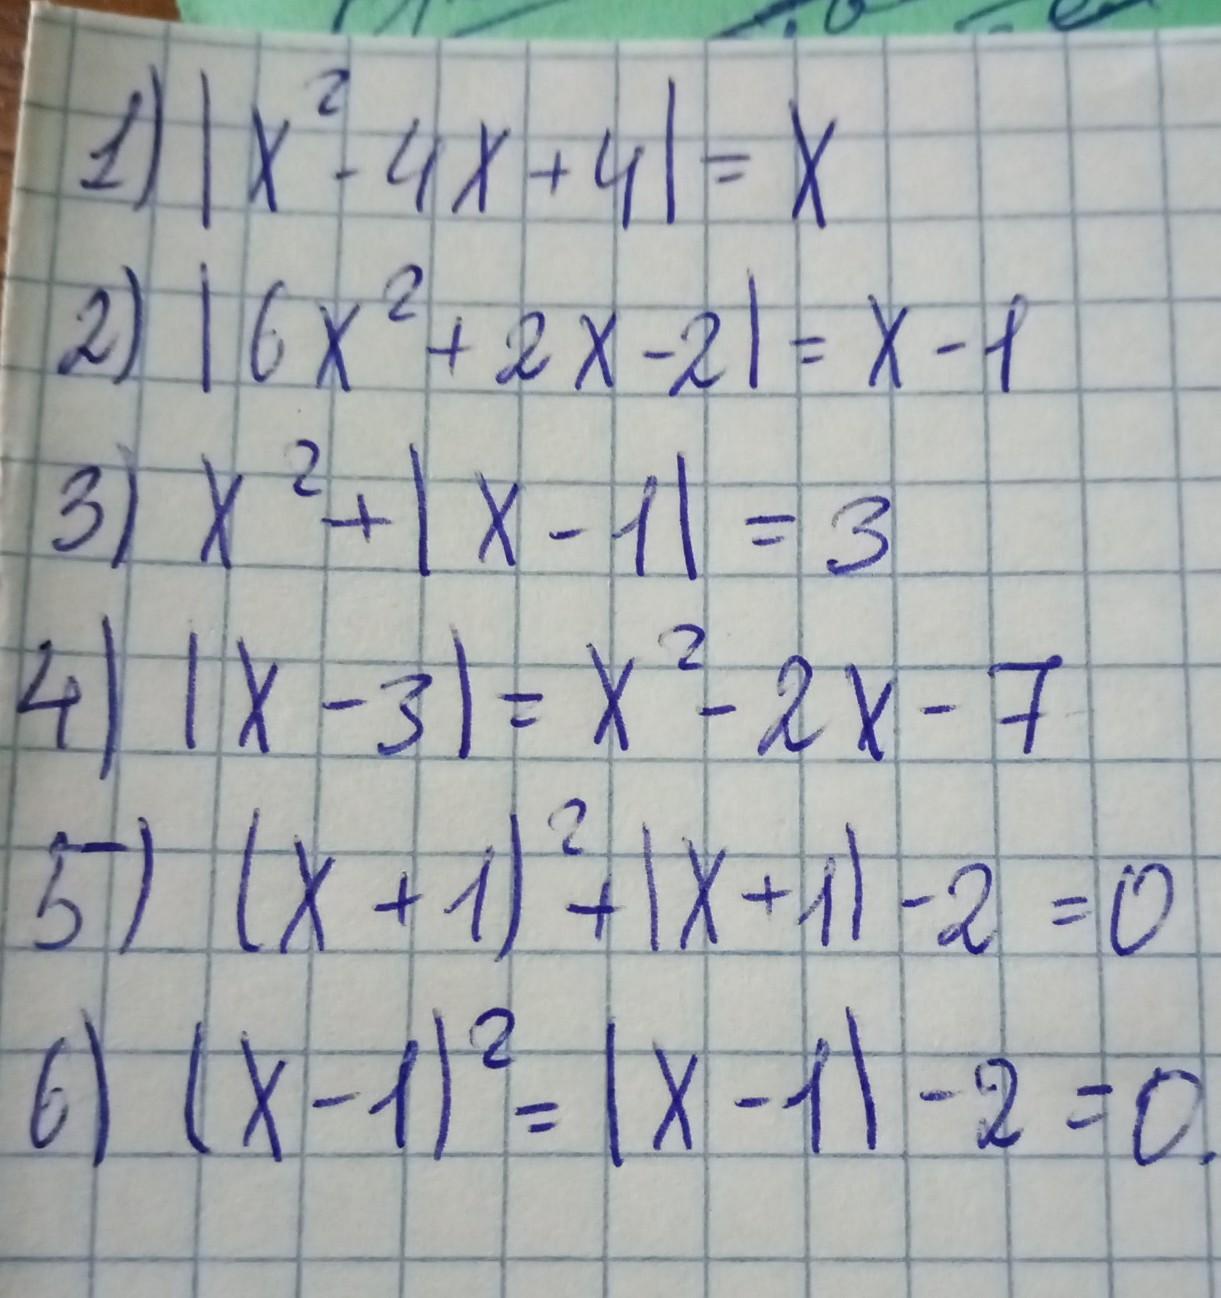 1) |x² - 4x + 4| = x
2) |6x² + 2x - 2| = x - 1
3) x² + |x - 1| = 3
4) |x - 3| = x² - 2x - 7
5) (x + 1)² + |x + 1| - 2 = 0
6) (x - 1)² = |x - 1| - 2 = 0.